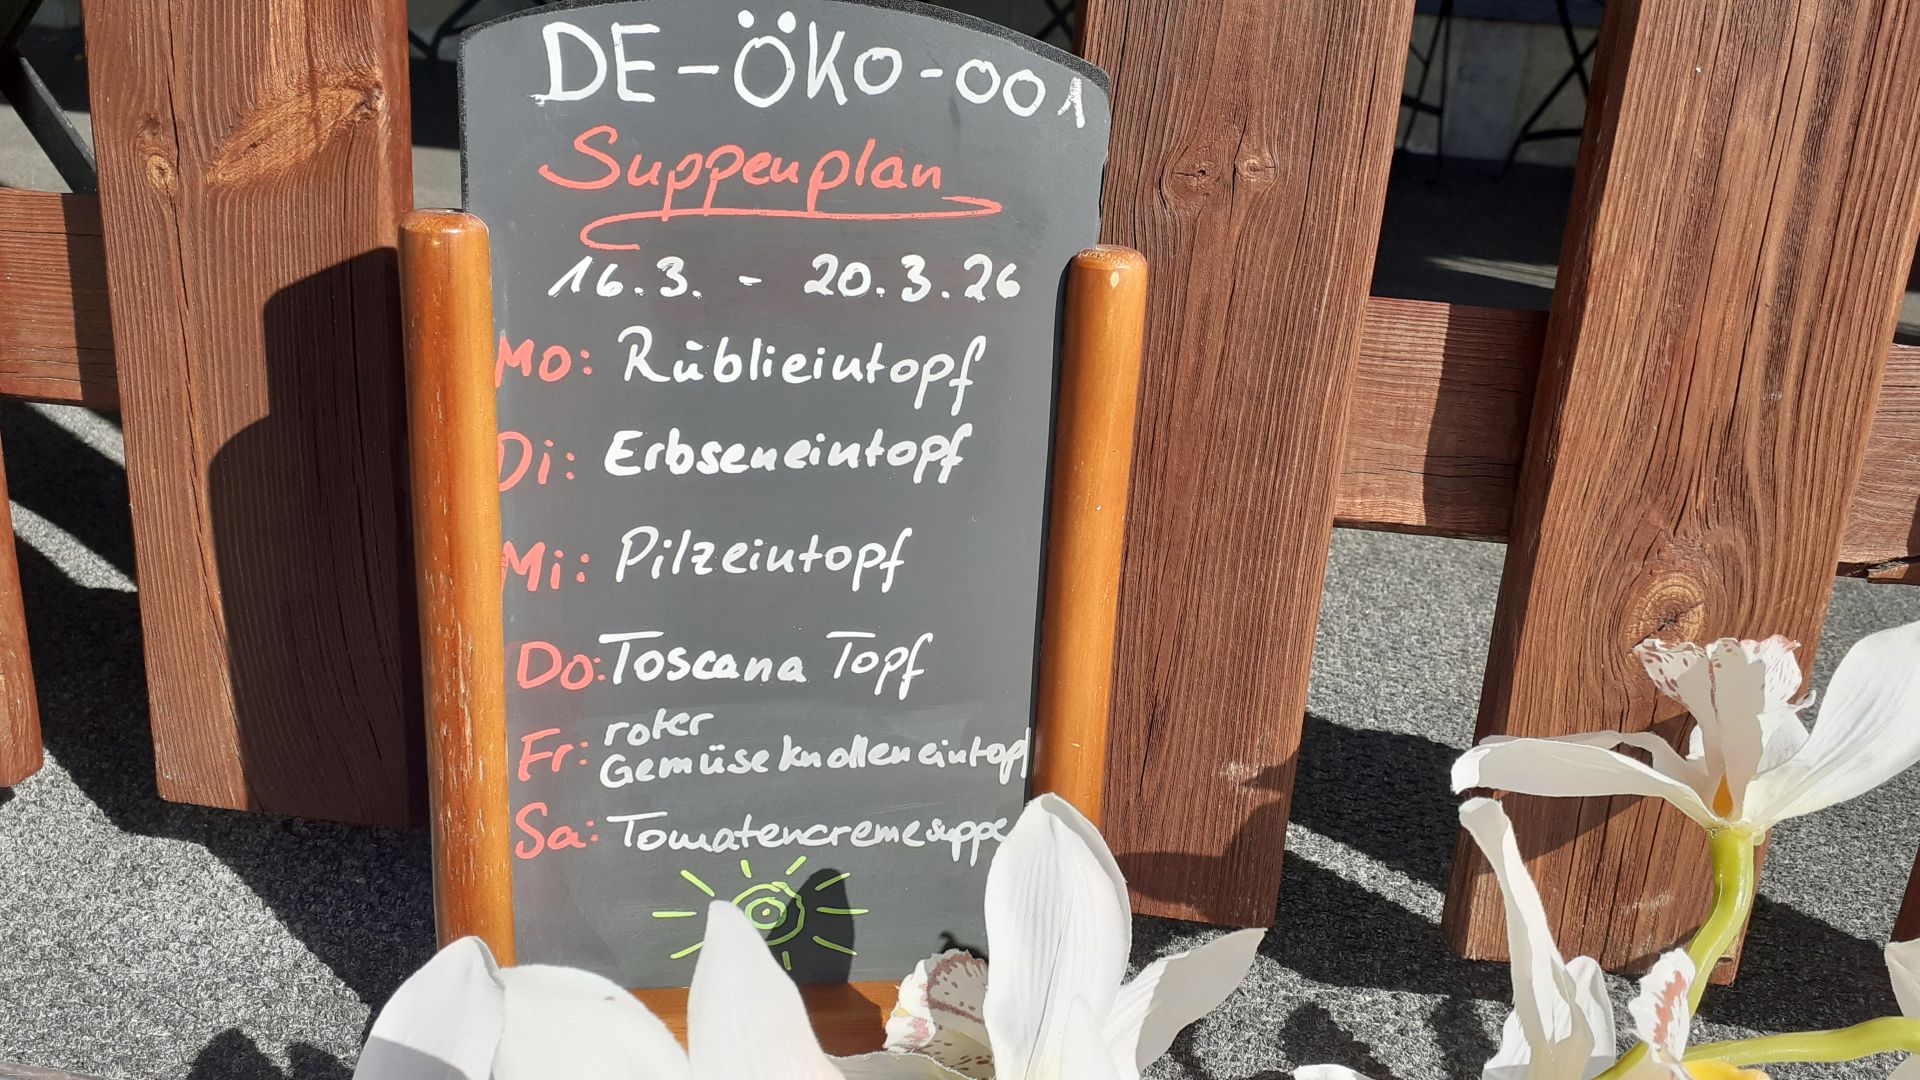 DE-ÖKO-001
Suppenplan
16.3. - 20.3.26
Mo: Rüblieintopf
Di: Erbseneintopf
Mi: Pilzeintopf
Do: Toscana Topf
Fr: roter
Gemüseknolleneintopf
Sa: Tomatencremesuppe